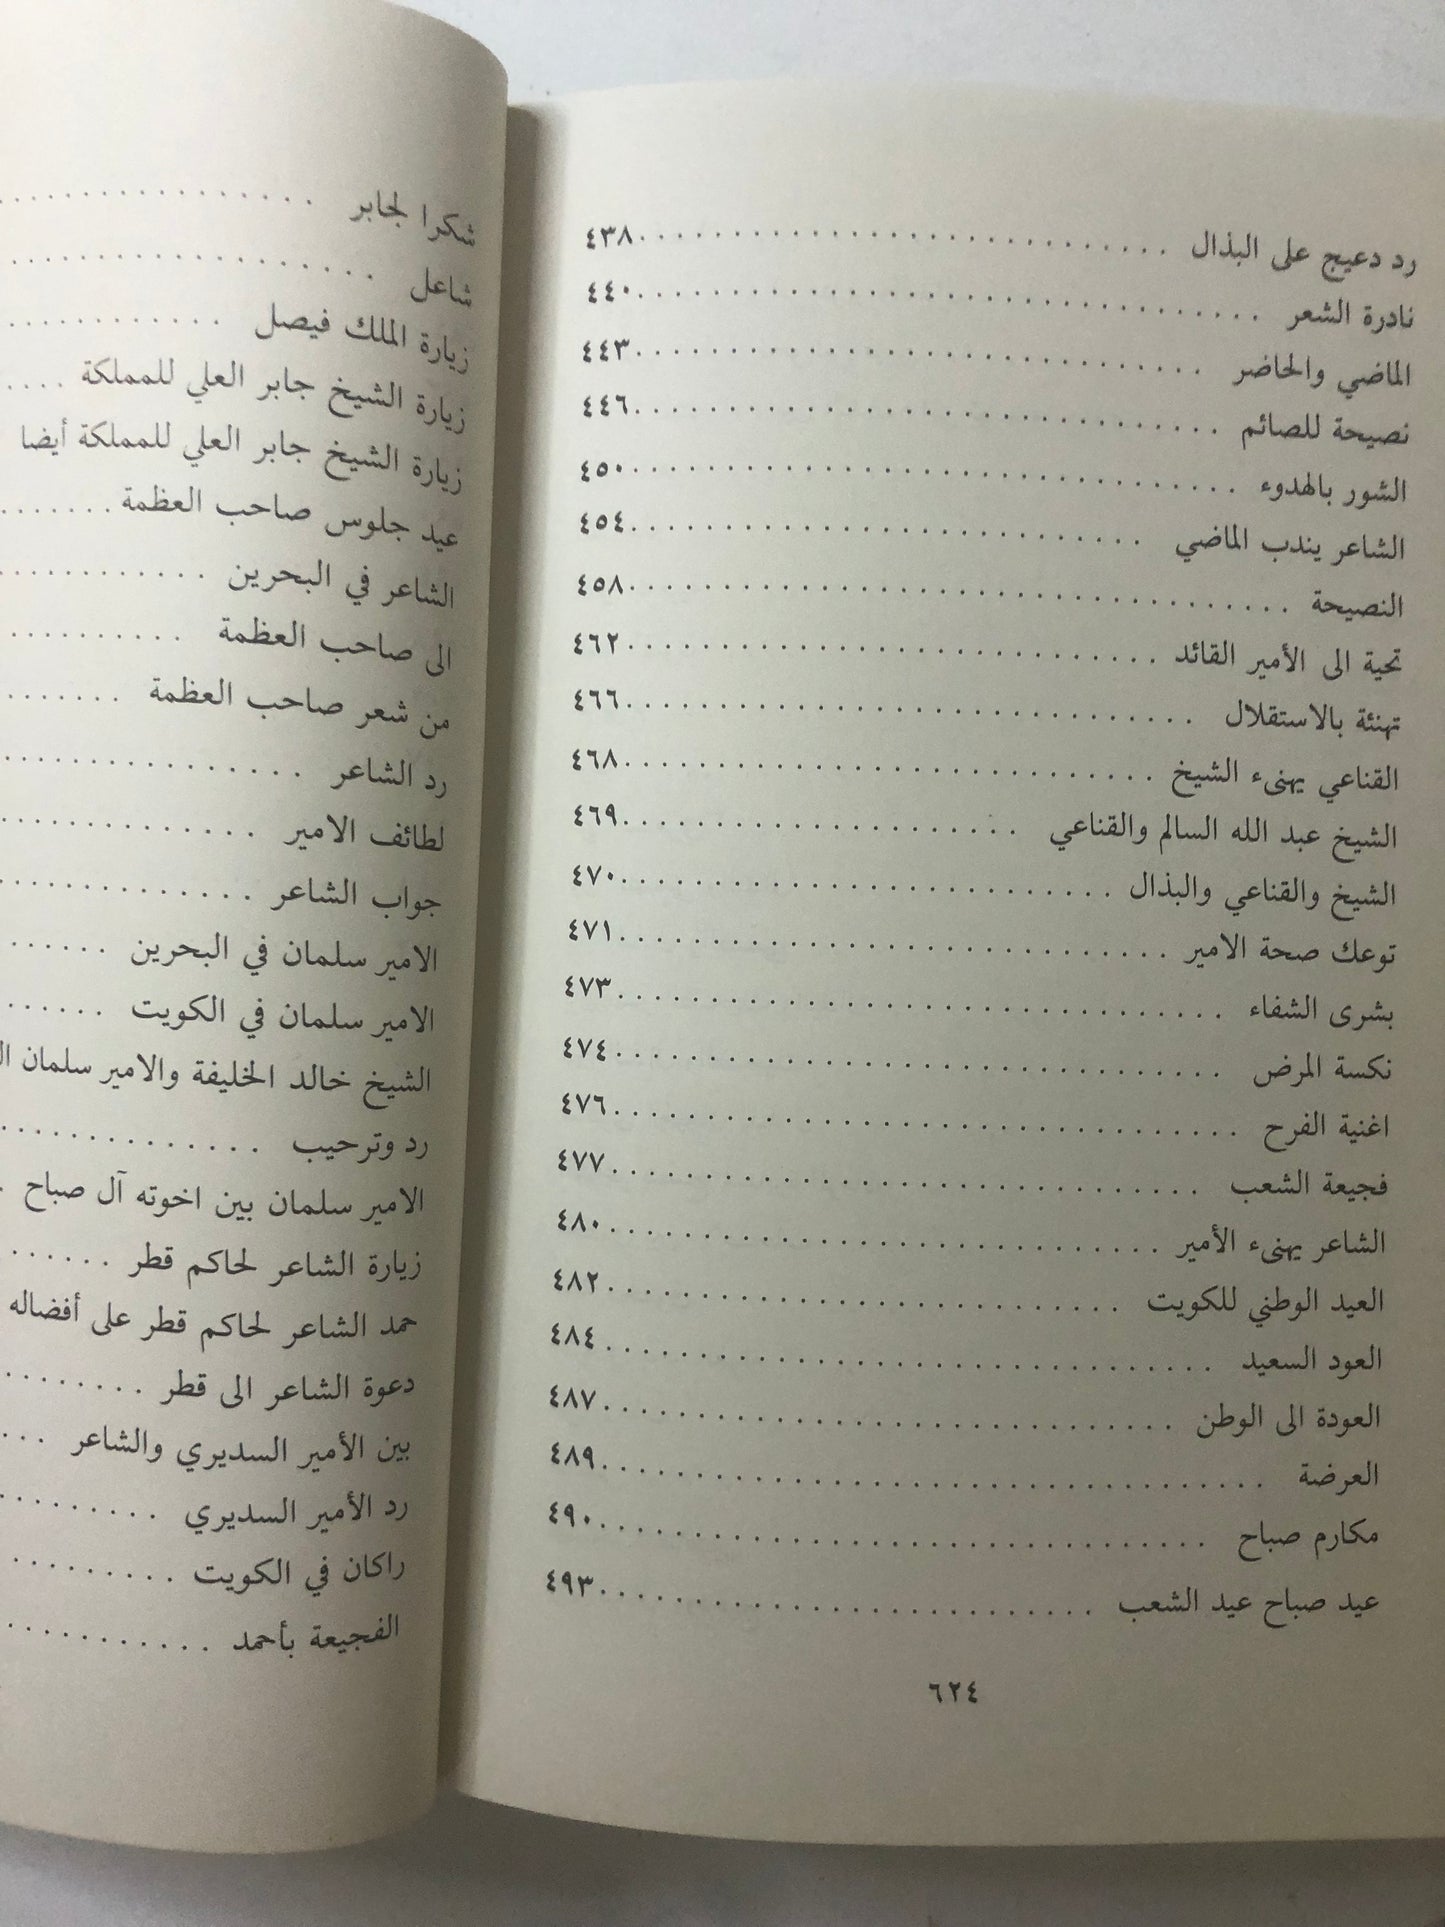 رد دعيج على البذال ٤٣٨
نادرة الشعر ٤٤٠
الماضي والحاضر ٤٤٣
نصيحة للصائم ٤٤٦
الشور بالهدوء ٤٥٠
الشاعر يندب الماضي ٤٥٤
النصيحة ٤٥٨
تحية الى الأمير القائد ٤٦٢
تهنئة بالاستقلال ٤٦٦
القناعي يهنىء الشيخ ٤٦٨
الشيخ عبد الله السالم والقناعي ٤٦٩
الشيخ والقناعي والبذال ٤٧٠
توعك صحة الامير ٤٧١
بشرى الشفاء ٤٧٣
نكسة المرض ٤٧٤
اغنية الفرح ٤٧٦
فجيعة الشعب ٤٧٧
الشاعر يهنىء الأمير ٤٨٠
العيد الوطني للكويت ٤٨٢
العود السعيد ٤٨٤
العودة الى الوطن ٤٨٧
العرضة ٤٨٩
مكارم صباح ٤٩٠
عيد صباح عيد الشعب ٤٩٣
٦٢٤
شكرا لجابر
شاعل
زيارة الملك فيصل
زيارة الشيخ جابر العلي للمملكة
زيارة الشيخ جابر العلي للمملكة أيضا
عيد جلوس صاحب العظمة
الشاعر في البحرين
الى صاحب العظمة
من شعر صاحب العظمة
رد الشاعر
لطائف الامير
جواب الشاعر
الامير سلمان في البحرين
الامير سلمان في الكويت
الشيخ خالد الخليفة والامير سلمان
رد وترحيب
الامير سلمان بين اخوته آل صباح
زيارة الشاعر لحاكم قطر
حمد الشاعر لحاكم قطر على أفضاله
دعوة الشاعر الى قطر
بين الأمير السديري والشاعر
رد الأمير السديري
راكان في الكويت
الفجيعة بأحمد